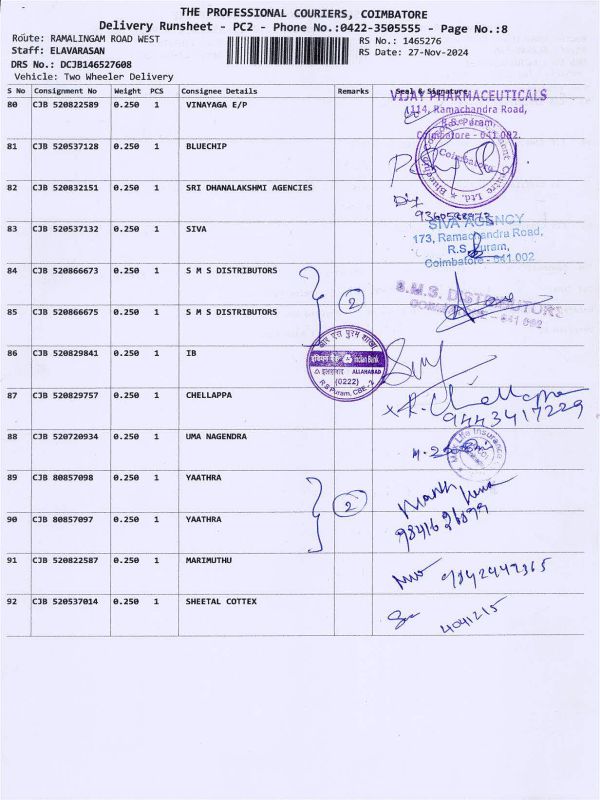 THE PROFESSIONAL COURIERS, COIMBATORE
Delivery Runsheet - PC2 - Phone No.:0422-3505555 - Page No.:8
Route: RAMALINGAM ROAD WEST
RS No.: 1465276
Staff: ELAVARASAN
RS Date: 27-Nov-2024
DRS No.: DCJB146527608
Vehicle: Two Wheeler Delivery
S No Consignment No Weight PCS Consignee Details Remarks Seal & Signature
80 CJB 520822589 0.250 1 VINAYAGA E/P
VIJAY PHARMACEUTICALS
114, Ramachandra Road,
R.S. Puram,
Coimbatore - 641 002.
81 CJB 520537128 0.250 1 BLUECHIP
Coimbatore
82 CJB 520832151 0.250 1 SRI DHANALAKSHMI AGENCIES
83 CJB 520537132 0.250 1 SIVA
SIVA AGENCY
173, Ramachandra Road,
R.S. Puram,
Coimbatore - 641 002
84 CJB 520866673 0.250 1 S M S DISTRIBUTORS
2
S.M.S. DISTRIBUTORS
COIMBATORE - 641 002
85 CJB 520866675 0.250 1 S M S DISTRIBUTORS
86 CJB 520829841 0.250 1 IB
Indian Bank
इलाहाबाद ALLAHABAD
(0222)
R S Puram, CBE - 2
87 CJB 520829757 0.250 1 CHELLAPPA
R. Chellappa
9443417229
88 CJB 520720934 0.250 1 UMA NAGENDRA
89 CJB 80857098 0.250 1 YAATHRA
2
90 CJB 80857097 0.250 1 YAATHRA
91 CJB 520822587 0.250 1 MARIMUTHU
92 CJB 520537014 0.250 1 SHEETAL COTTEX
4041215